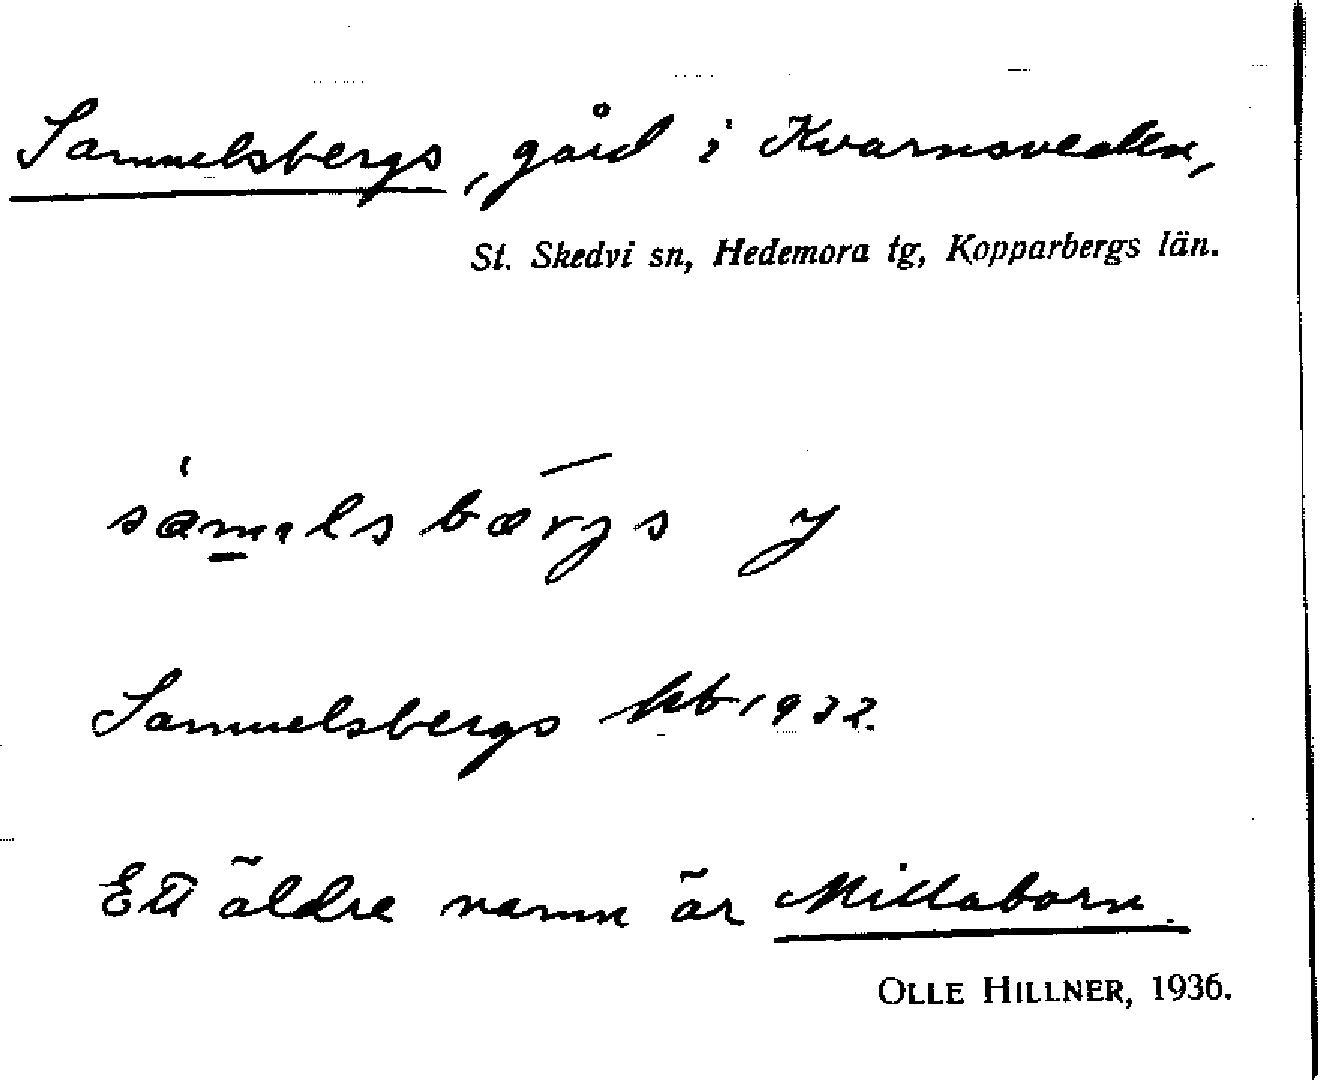 Samuelsbergs, gård i Kvarnsveden,
St. Skedvi sn, Hedemora tg, Kopparbergs län.
Samuelsbergs kb 1932.
Ett äldre namn är Millaborn.
OLLE HILLNER, 1936.